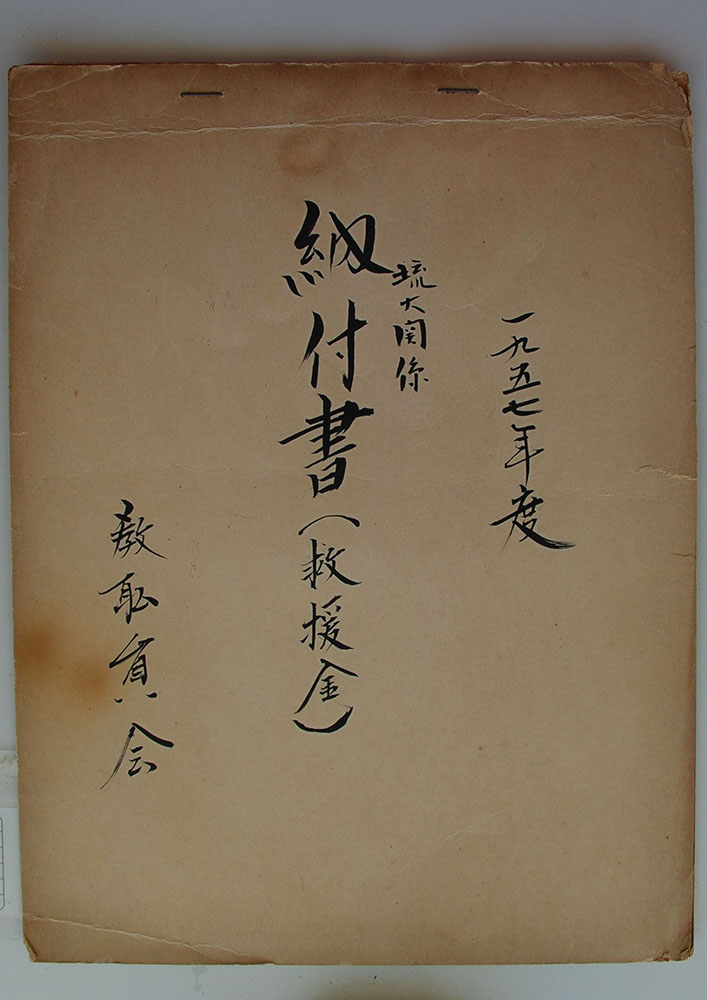 一九五七年度
琉大関係
納付書(救援金)
教职員会